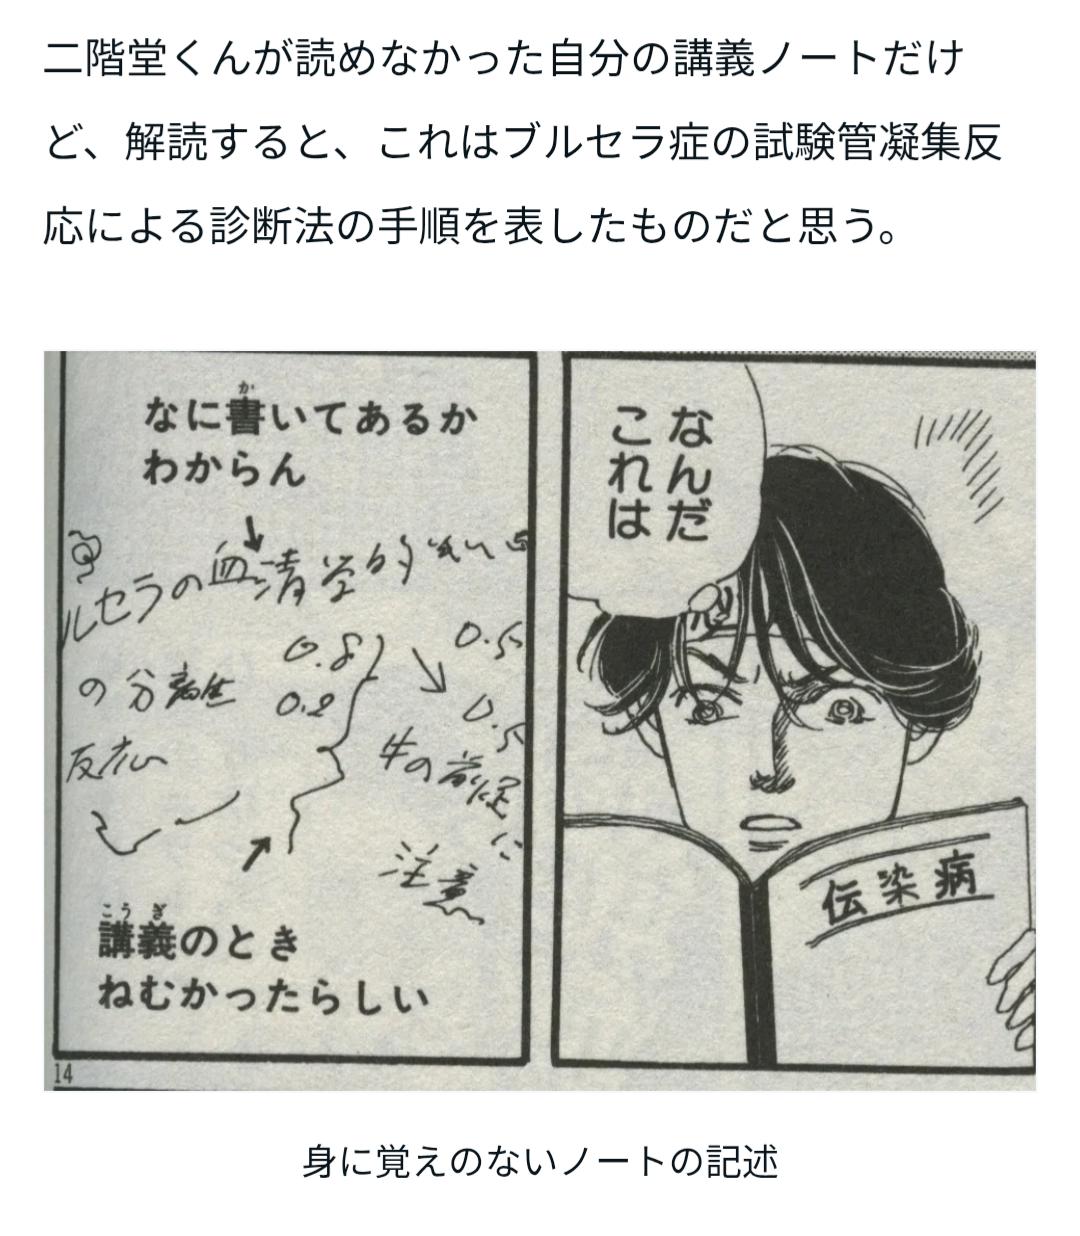 二階堂くんが読めなかった自分の講義ノートだけ
ど、解読すると、これはブルセラ症の試験管凝集反
応による診断法の手順を表したものだと思う。
なんだ
これは
伝染病
なに書いてあるか
わからん
ルセラの血清学的
0.8
0.5
の分離
0.2
0.5
反応
牛の
に
注意
講義のとき
ねむかったらしい
14
身に覚えのないノートの記述